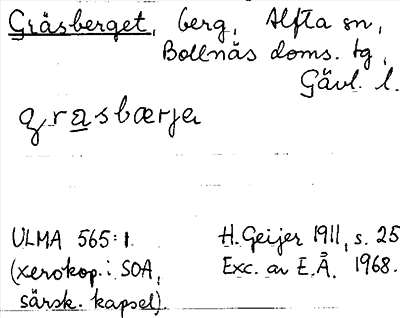 Gräsberget, berg, Alfta sn,
Bollnäs doms. tg,
Gävl. l.
grasbærja
ULMA 565:1. H. Geijer 1911, s. 25
(xerokop. i SOA, Exc. av E.Å. 1968.
särsk. kapsel).